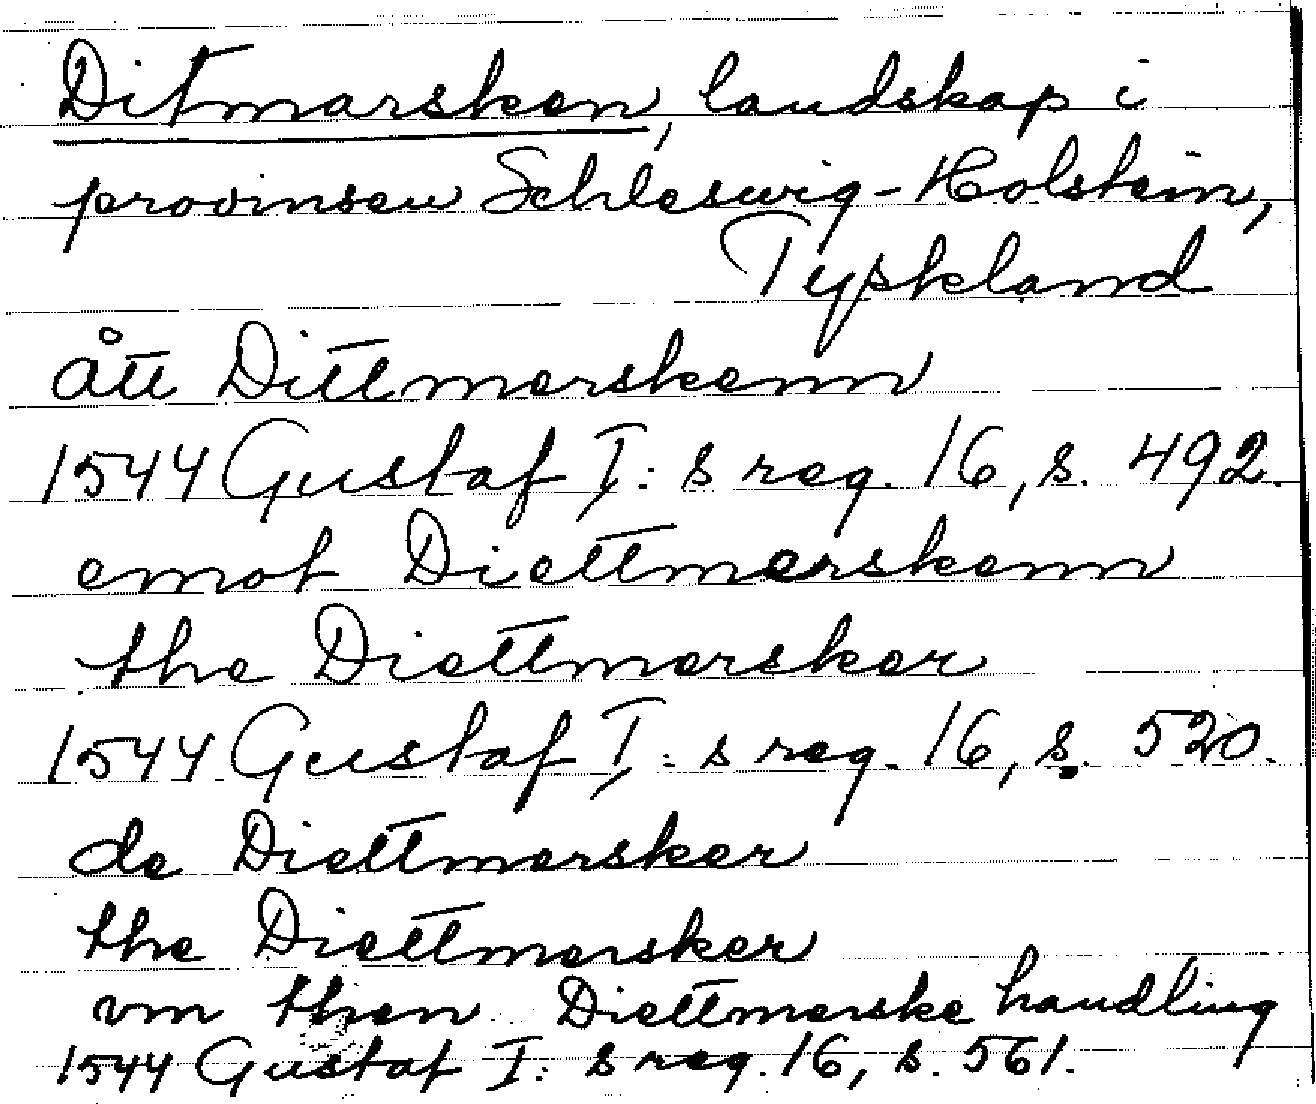 Ditmarsken, landskap i
provinsen Schleswig-Holstein,
Tyskland
ått Dittmerskenn
1544 Gustaf I: s reg. 16, s. 492.
emot Diettmerskenn
the Diettmersker
1544 Gustaf I: s reg. 16, s. 520.
de Diettmersker
the Diettmersker
vm then Diettmerske handling
1544 Gustaf I: s reg. 16, s. 561.